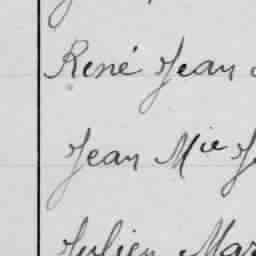 René Jean
Jean Mie
Julien Mar